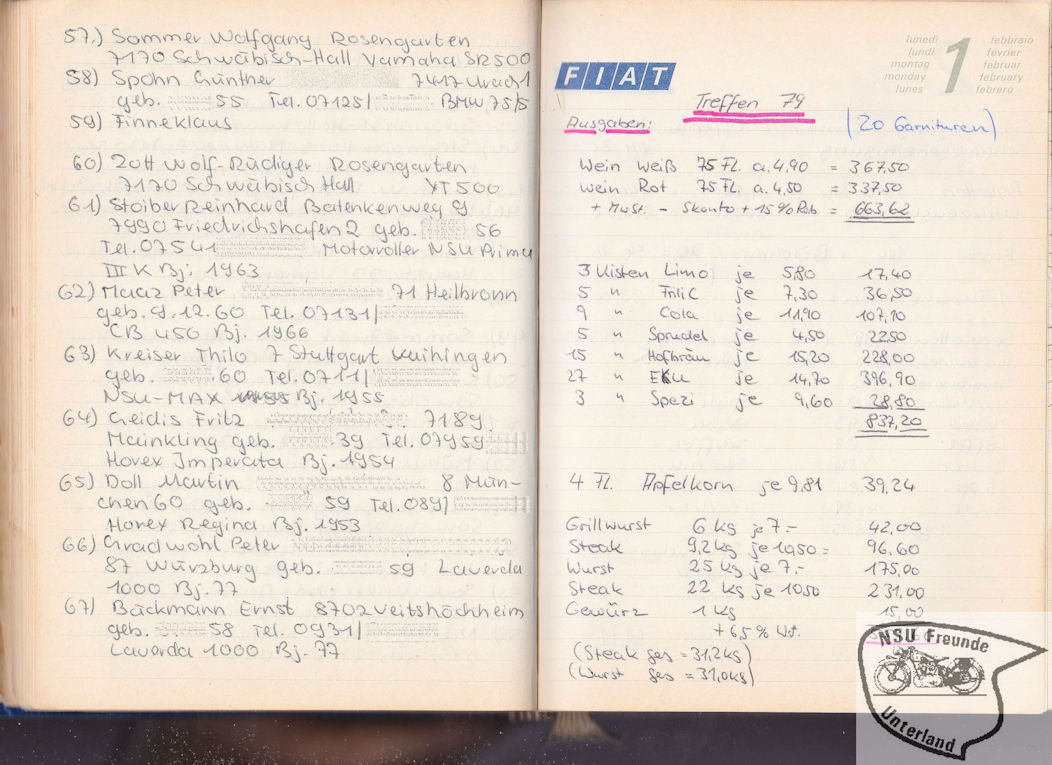 57.) Sommer Wolfgang Rosengarten
7170 Schwäbisch-Hall Yamaha SR500
58) Spohn Günther 7417 Urach 1
geb. 55 Tel. 07125/ BMW 75/5
59) Finneklaus
60) Zott Wolf-Rüdiger Rosengarten
7170 Schwäbisch Hall XT 500
61) Stoiber Reinhard Batenkenweg 9
7990 Friedrichshafen 2 geb. 56
Tel. 07541 Motorroller NSU Prima
III K Bj. 1963
62) Maaz Peter 71 Heilbronn
geb. 9.12.60 Tel. 07131/
CB 450 Bj. 1966
63) Kreiser Thilo 7 Stuttgart Vaihingen
geb. 60 Tel. 0711/
NSU-MAX Bj. 1955
64) Geidis Fritz 7189
Mainkling geb. 39 Tel. 07959
Horex Imperata Bj. 1954
65) Doll Martin 8 Mün-
chen 60 geb. 59 Tel. 089/
Horex Regina Bj. 1953
66) Gradwohl Peter
87 Würzburg geb. 59 Laverda
1000 Bj. 77
67) Bäckmann Ernst 8702 Veitshöchheim
geb. 58 Tel. 0931/
Laverda 1000 Bj. 77
FIAT
lunedì
lundi
montag
monday
lunes
1
febbraio
février
februar
february
febrero
Treffen 79
Ausgaben: (20 Garnituren)
Wein Weiß 75 Fl. a. 4,90 = 367,50
Wein Rot 75 Fl. a. 4,50 = 337,50
+ MwSt. - Skonto + 15 % Rab. = 663,62
3 Kisten Limo je 5,80 17,40
5 " Frilic je 7,30 36,50
9 " Cola je 11,90 107,10
5 " Sprudel je 4,50 22,50
15 " Hofbräu je 15,20 228,00
27 " EKU je 14,70 396,90
3 " Spezi je 9,60 28,80
837,20
4 Fl. Apfelkorn je 9,81 39,24
Grillwurst 6 kg je 7.- 42,00
Steak 9,2 kg je 10,50 = 96,60
Wurst 25 kg je 7.- 175,00
Steak 22 kg je 10,50 231,00
Gewürz 1 kg 15,00
+ 6,5 % Wst.
(Steak ges = 31,2 kg)
(Wurst ges = 31,0 kg)
NSU Freunde
Unterland